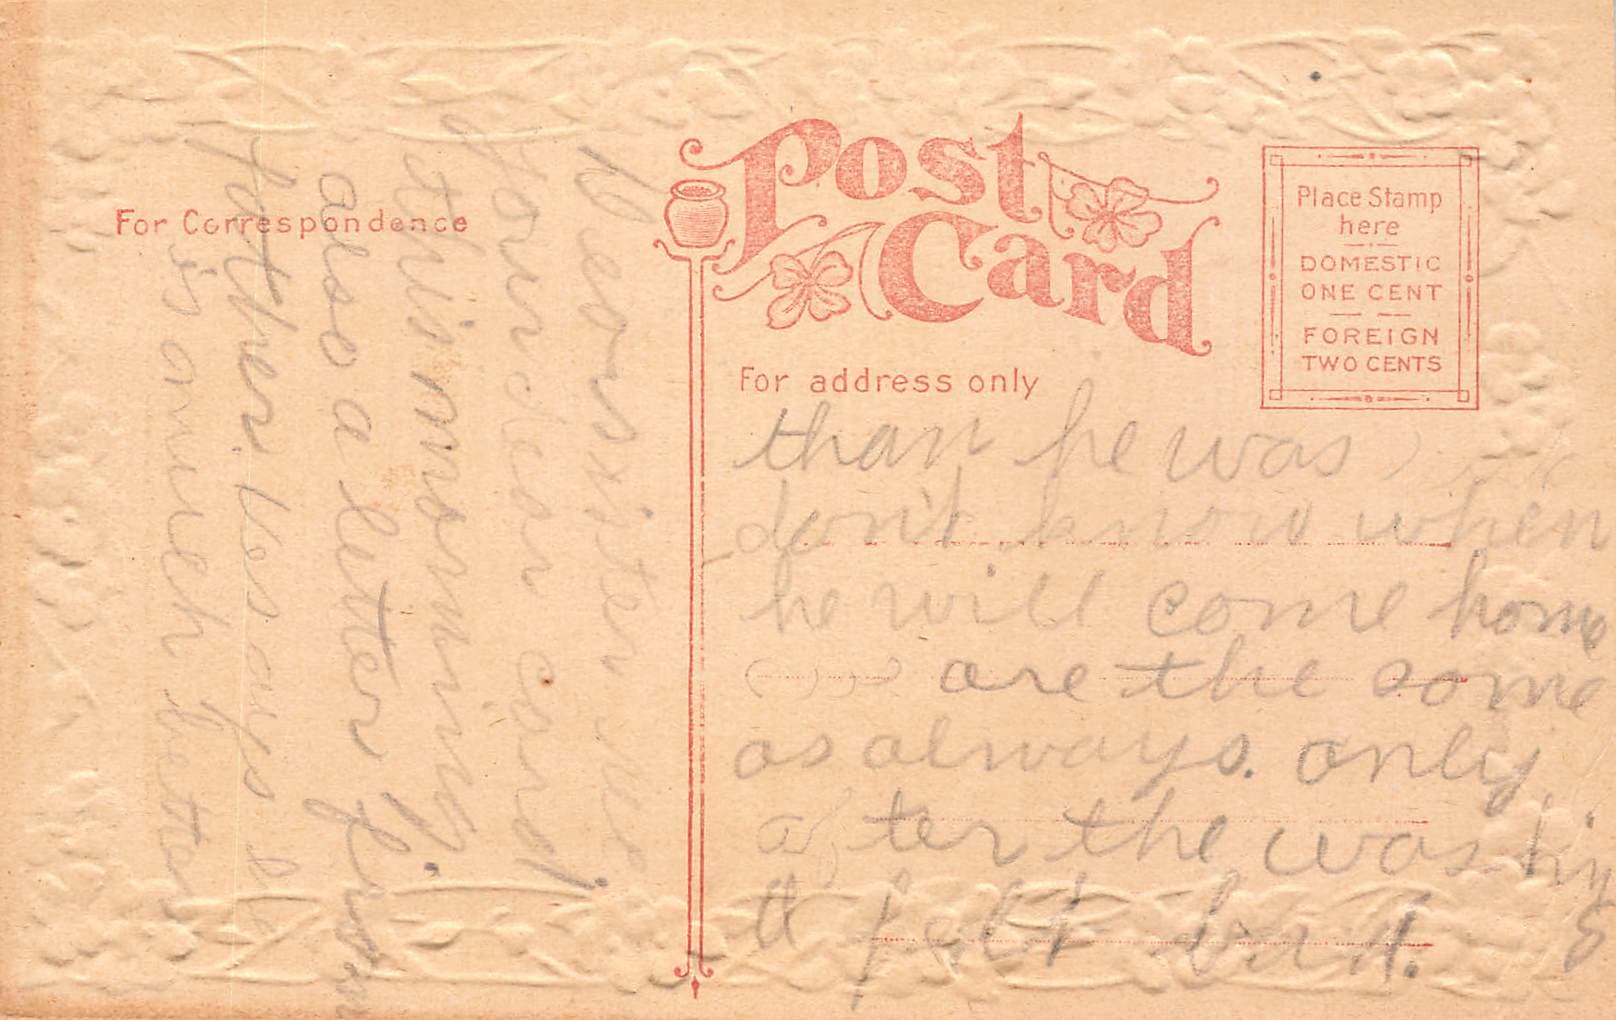 Post
Card
For Correspondence
Place Stamp
here
DOMESTIC
ONE CENT
FOREIGN
TWO CENTS
For address only
Dear sister
your dear card
this morning.
also a letter from
father. he says
is much better
than he was
don't know when
he will come home
are the same
as always. only
after the washing
I felt bad.